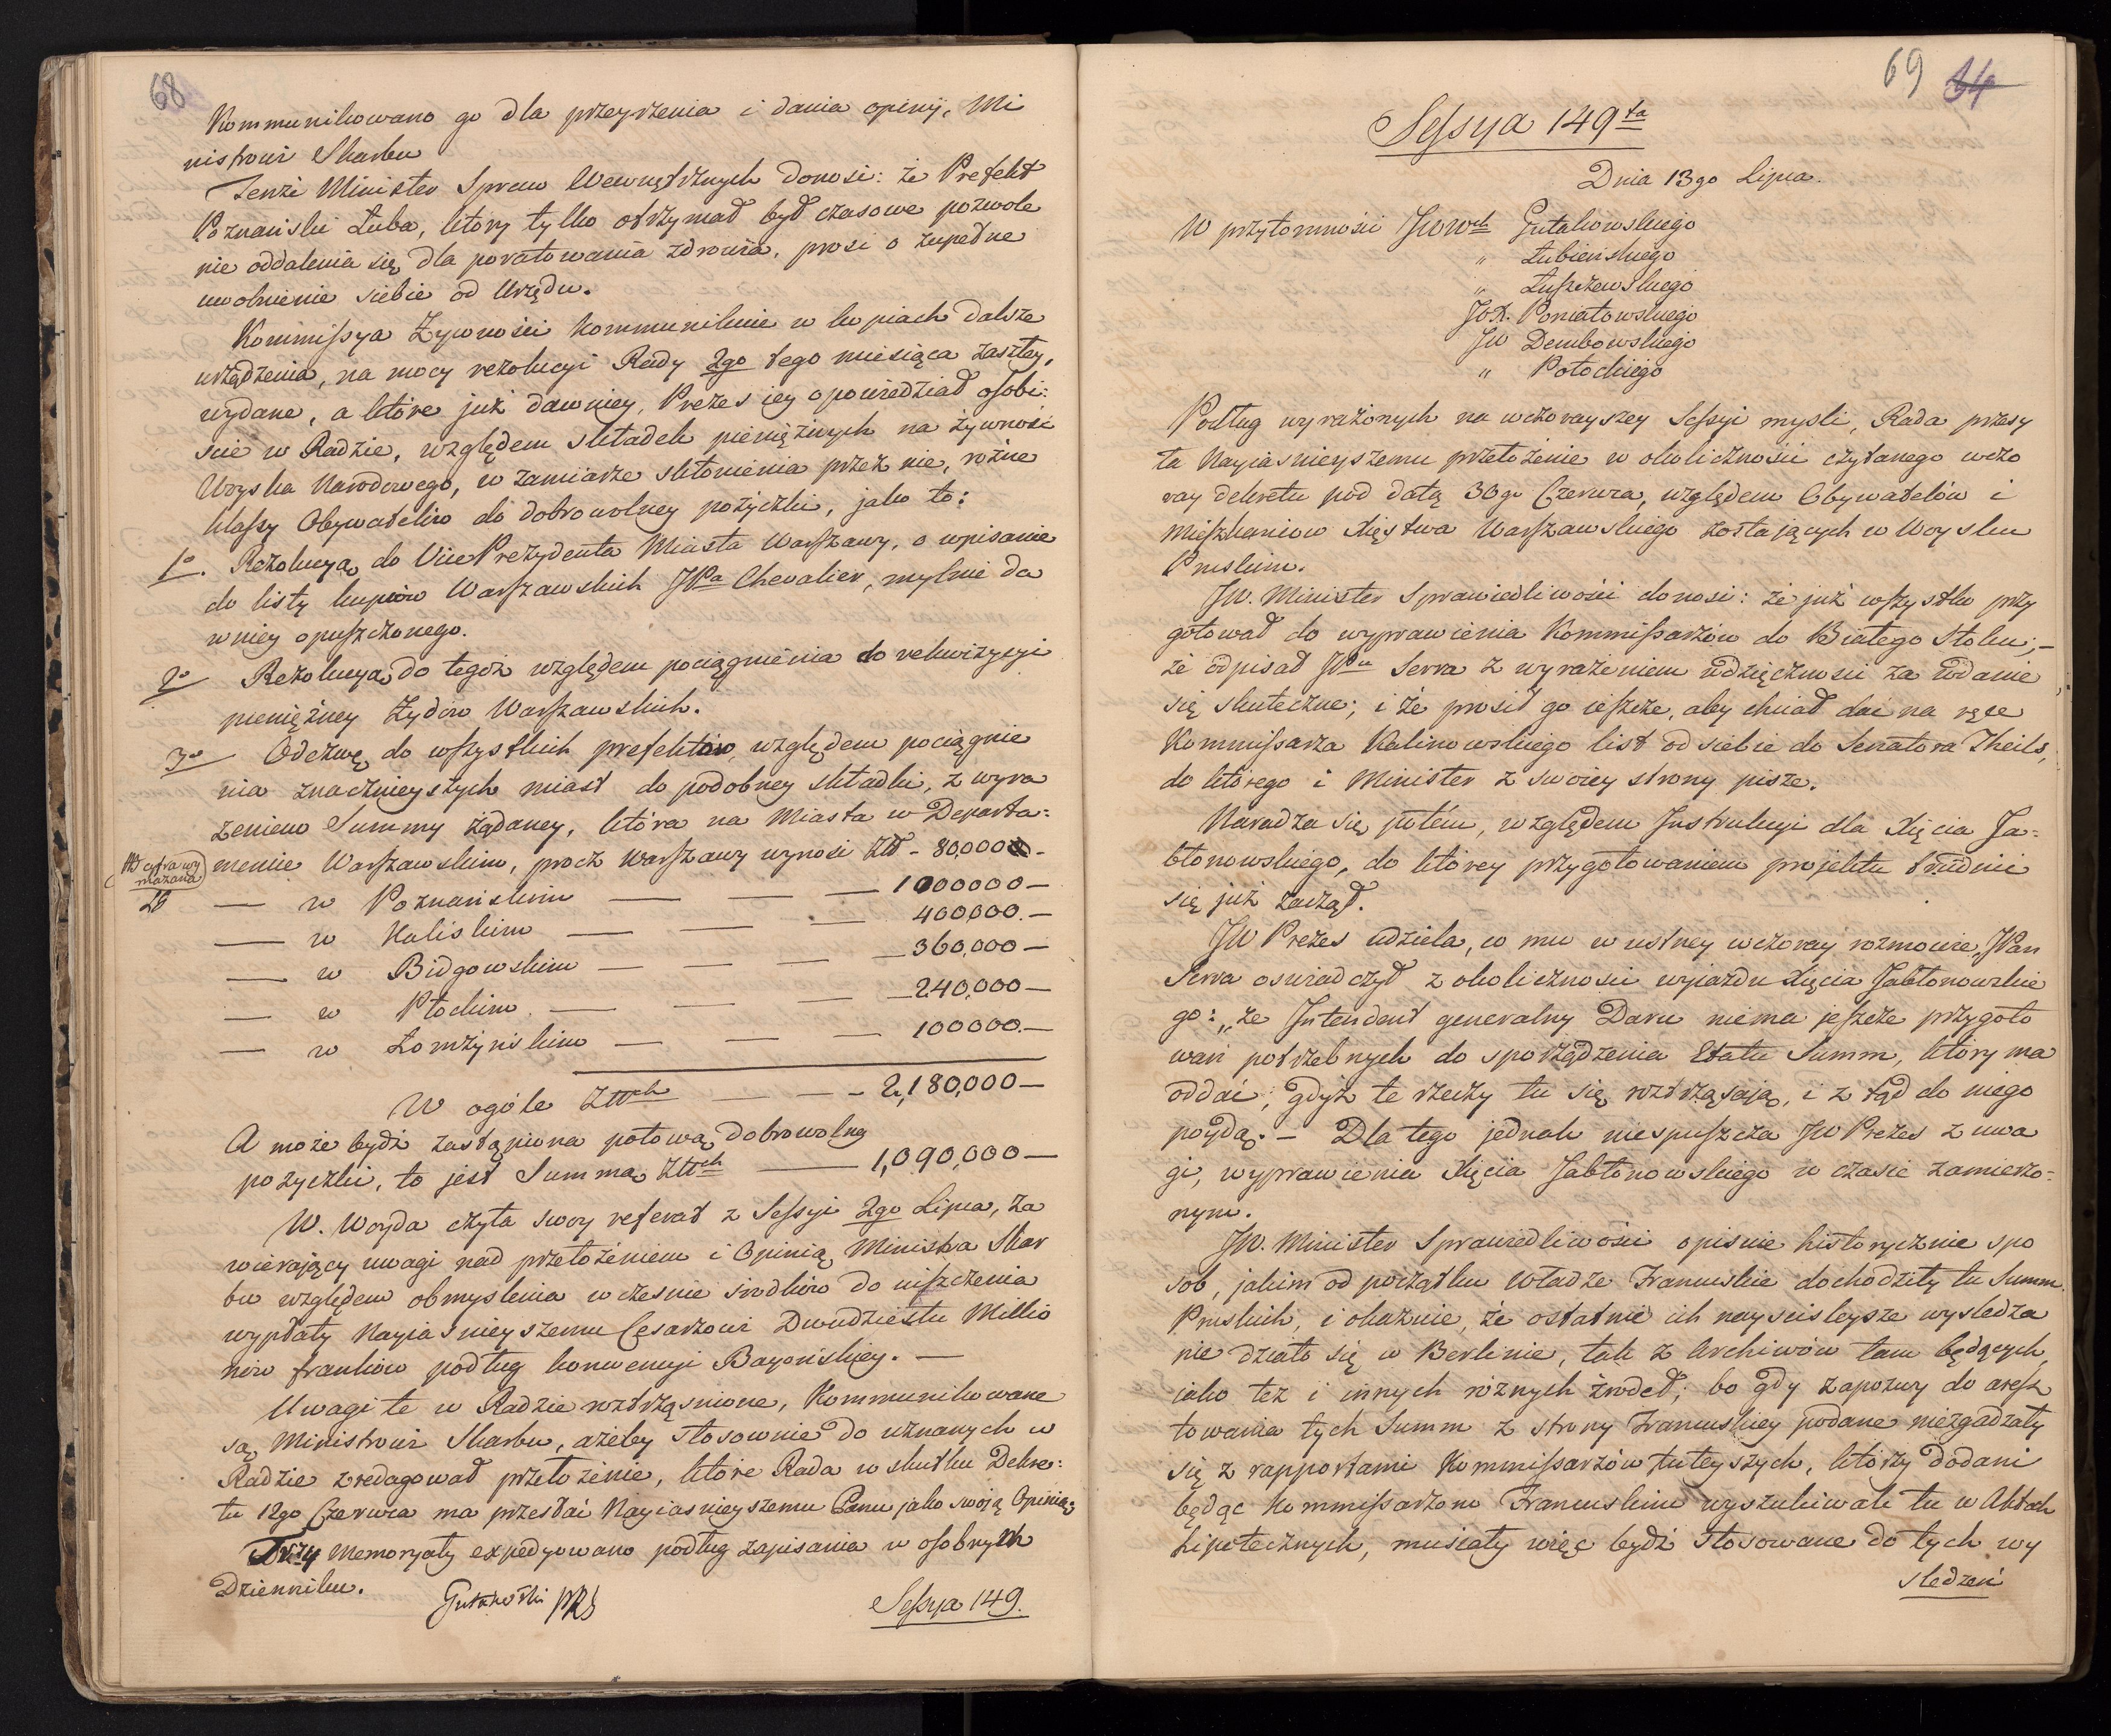 68
Kommunikowano go dla przeyrzenia i dania opinij, Mi
nistrowi Skarbu
Tenże Minister Spraw Wewnętrznych donosi: że Prefekt
Poznański Łuba, który tylko otrzymał był czasowe pozwole
nie oddalenia się dla poratowania zdrowia, prosi o zupełne
uwolnienie siebie od Urzędu.
Kommissya Żywności kommunikuie w kopiach dalsze
urządzenia, na mocy rezolucyi Rady 2go tego miesiąca zaszłey,
wydane, a które już dawniey, Prezes iey opowiedział osobi:
scie w Radzie, względem składek pieniężnych na żywność
Woyska Narodowego, w zamiarze skłonienia przez nie, rożne
klassy Obywatelów do dobrowolney pożyczki, jako to:
1o. Rezolucyą do VicePrezydenta Miasta Warszawy, o wpisanie
do listy kupców Warszawskich JPa Chevalier, mylnie da
wniey opuszczonego.
2o Rezolucyą do tegoż względem pociągnienia do rekwizycyi
pieniężney Żydów Warszawskich.
3o Odezwę do wszystkich prefektów, względem pociągnie
nia znacznieyszych miast do podobney składki, z wyra
żeniem Summy żądaney, która na Miasta w Departa:
mencie Warszawskim, prócz Warszawy wynosi Zł - 80,000 -
NB cyfra wy
mazana
— w Poznańskim — — — 1000000 —
— w Kaliskim — — — 400,000. —
— w Bidgowskim — — — 360,000 —
— w Płockim — — — 240,000 —
— w Łomżyńskim — — — 100000. —
W ogóle Złłch — — - 2,180,000 —
A może bydź zastąpiona połową dobrowolną
pożyczki, to jest Summą Złłch — 1,090,000 —
W. Woyda czyta swoy referat z Sessyi 2go Lipca, za
wierający uwagi nad przełożeniem i Opinią Ministra Skar
bu względem obmyslenia wczesnie srodków do uiszczenia
wypłaty Nayiasnieyszemu Cesarzowi Dwudziestu Millio
nów franków podług konwencyi Bayońskiey. —
Uwagi te w Radzie roztrząsnione, Kommunikowane
są Ministrowi Skarbu, ażeby stosownie do uznanych w
Radzie zredagował przełożenie, które Rada w skutku Dekre:
tu 12go Czerwca ma przesłać Nayiasnieyszemu Panu jako swoją Opinią;
Trzy Memoryały expedyowano podług zapisania w osobnych
Dzienniku.
Gutakowski PRS
Sessya 149.
69 34
Sessya 149ta
Dnia 13go Lipca.
W przytomności JWWch Gutakowskiego
" Łubieńskiego
" Łuszczewskiego
JOX. Poniatowskiego
JW Dembowskiego
" Potockiego
Podług wyrażonych na wczorayszey Sessyi mysli, Rada przesy
ła Nayiasnieyszemu przełożenie w okoliczności czytanego wczo
ray dekretu pod datą 30go Czerwca, względem Obywatelów i
Mieszkańców Xięstwa Warszawskiego zostających w Woysku
Pruskim.
JW. Minister Sprawiedliwości donosi: że już wszystko przy
gotował do wyprawienia Kommissarzów do Białego Stoku; —
że odpisał JPu Serra z wyrażeniem wdzięczności za wdanie
się skuteczne; i że prosił go ieszcze, aby chciał dać na ręce
Kommissarza Kalinowskiego list od siebie do Senatora Theils,
do którego i Minister z swoiey strony pisze.
Naradza się potém, względem Instrukcyi dla Xięcia Ja:
błonowskiego, do którey przygotowaniem projektu trudnić
się już zaczął.
JW Prezes udziela, co mu w ustney wczoray rozmowie, JPan
Serra oswiadczył z okoliczności wyjazdu Xięcia Jabłonowskie
go: „że Intendent generalny Daru niema jeszcze przygoto
wań potrzebnych do sporządzenia Etatu Summ, który ma
oddać, gdyż te rzeczy tu się roztrząsają, i z tąd do niego
poydą. — Dla tego jednak niespuszcza JW Prezes z uwa
gi, wyprawienia Xięcia Jabłonowskiego w czasie zamierzo:
nym.
JW. Minister Sprawiedliwości opisuie historycznie spo
sob, jakim od początku Władze Francuskie dochodziły tu Summ
Pruskich, i okazuie, że ostatnie ich nayscisleysze wysledza
nie działo się w Berlinie, tak z Archiwów tam będących,
iako też i innych różnych źrodeł; bo gdy zapozwy do aresz
towania tych Summ z strony Francuskiey podane niezgadzały
się z rapportami Kommissarzów tuteyszych, którzy dodani
będąc Kommissarzom Francuskim wyszukiwali tu w Aktach
hipotecznych, musiały więc bydź stosowane do tych wy
sledzeń